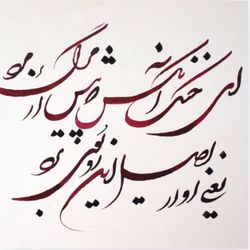 ای خنک آنکس که پیش از مرگ مرد
یعنی او از اصل این رز بوئی برد